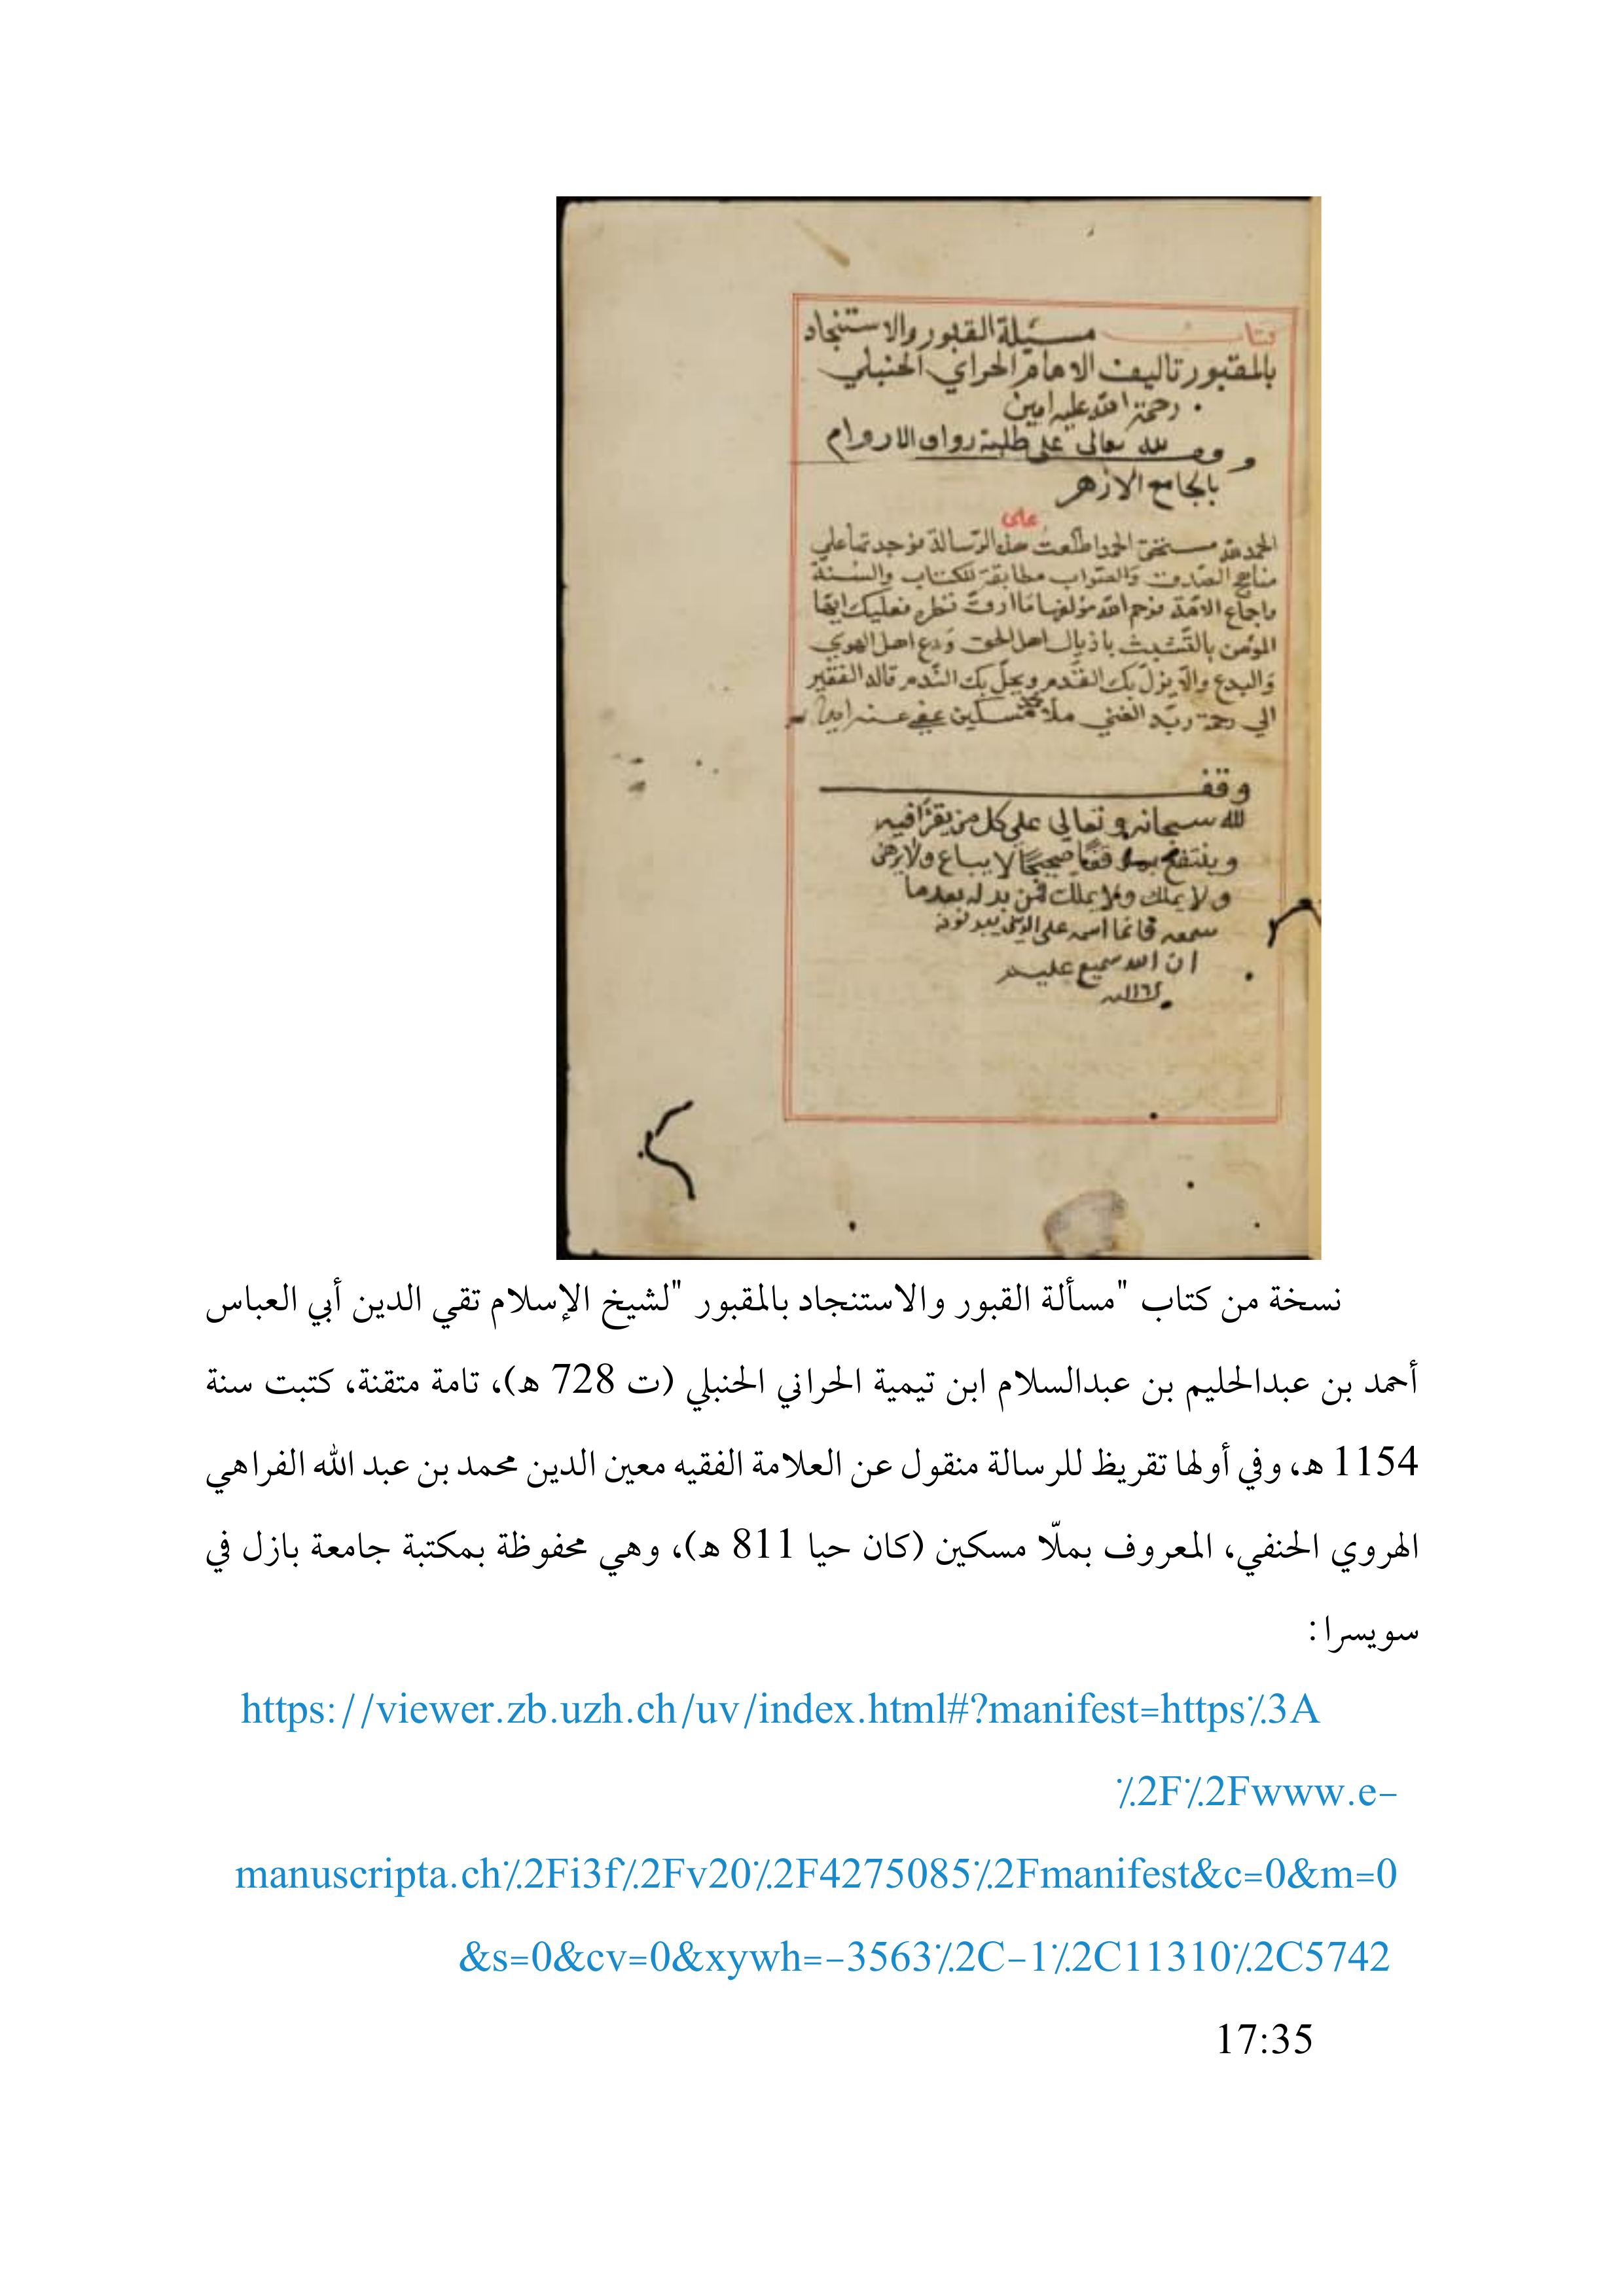 كتاب مسئلة القبور والاستنجاد
بالمقبور تاليف الامام الحراي الحنبلي
رحمة الله عليه امين
وقف لله تعالى على طلبة رواق الاروام
بالجامع الازهر
على
الحمد لله مستحق الحمد اطلعت هذه الرسالة فوجدتها علي
مناهج الصدق والصواب مطابقة للكتاب والسنة
واجماع الامة فرحم الله مؤلفها ما ادق نظره فعليك ايها
المؤمن بالتشبث باذيال اهل الحق ودع اهل الهوي
والبدع والا يزل بك القدم ويحل بك الندم قاله الفقير
الي رحمة ربه الغني ملا محمد مسكين عفي عنه امين
وقف
لله سبحانه وتعالي علي كل من يقرا فيه
وينتفع به وقفا صحيحا لا يباع ولا يرهن
ولا يملك ولا يملك فمن بدله بعد ما
سمعه فانما اسمه على الذين يبدلونه
ان الله سميع عليم
نسخة من كتاب "مسألة القبور والاستنجاد بالمقبور "لشيخ الإسلام تقي الدين أبي العباس
أحمد بن عبدالحليم بن عبدالسلام ابن تيمية الحراني الحنبلي (ت 728 هـ)، تامة متقنة، كتبت سنة
1154 هـ، وفي أولها تقريظ للرسالة منقول عن العلامة الفقيه معين الدين محمد بن عبد الله الفراهي
الهروي الحنفي، المعروف بملّا مسكين (كان حيا 811 هـ)، وهي محفوظة بمكتبة جامعة بازل في
سويسرا:
https://viewer.zb.uzh.ch/uv/index.html#?manifest=https٪3A
٪2F٪2Fwww.e-
manuscripta.ch٪2Fi3f٪2Fv20٪2F4275085٪2Fmanifest&c=0&m=0
&s=0&cv=0&xywh=-3563٪2C-1٪2C11310٪2C5742
17:35